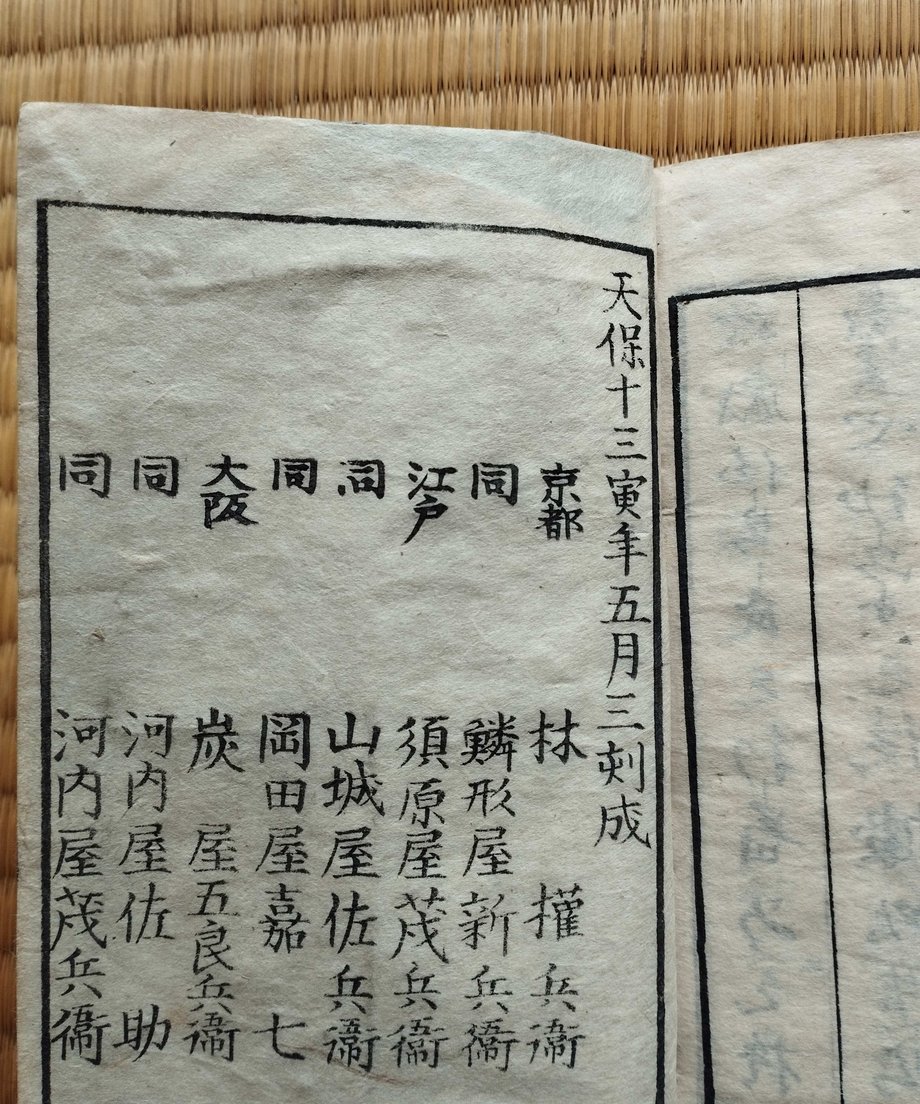 天保十三寅年五月三刻成
京都 林 權兵衞
同 鱗形屋新兵衞
江戸 須原屋茂兵衞
同 山城屋佐兵衞
同 岡田屋嘉七
大阪 炭屋五良兵衞
同 河内屋佐助
同 河内屋茂兵衞